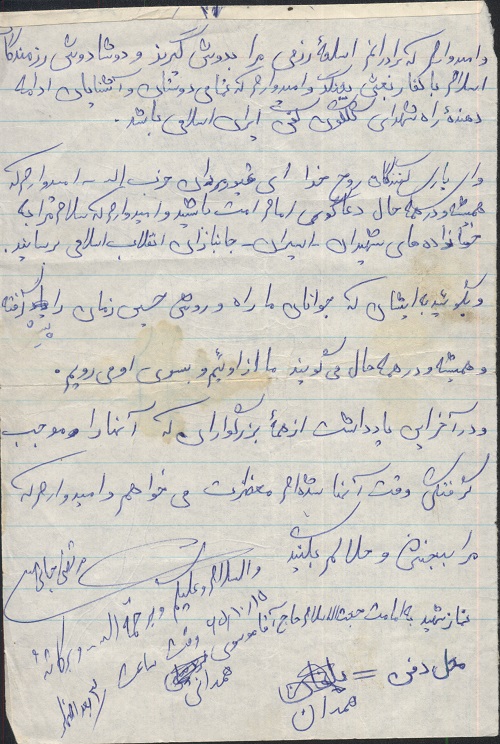 وامیدوارم که برادرانم اسلحهٔ رزمی مرا بدوش گیرند و دوشادوش رزمندگان
اسلام با کفار بعثی بجنگند وامیدوارم که تمامی دوستان و آشنایان ادامه
دهندهٔ راه شهدای گلگون کفن ایران اسلامی باشند.
وای یاری کنندگان روح خدا ای غیور مردان حزب اله - امیدوارم که
همیشه و در همه حال دعاگوی امام امت باشید و امیدوارم که سلام مرا به
خانواده های شهیدان - اسیران - جانبازان انقلاب اسلامی برسانید.
و بگوئید به ایشان که جوانان ما راه و روش حسین زمان را گرفته
و همیشه و در همه حال می گویند ما از اوئیم و بسوی او می رویم.
و در آخر این یادداشت از همهٔ بزرگوارانی که آنها را و موجب
گرفتن وقت آنها شده ام معذرت می خواهم و امیدوارم که
مرا ببخشند و حلالم بکنید
والسلام و علیکم و رحمة اله و برکاته
۶۵/۱۰/۱۵ وقت ساعت
نماز شهید به امامت حجت الاسلام حاج آقا موسوی همدانی
محل دفن = همدان